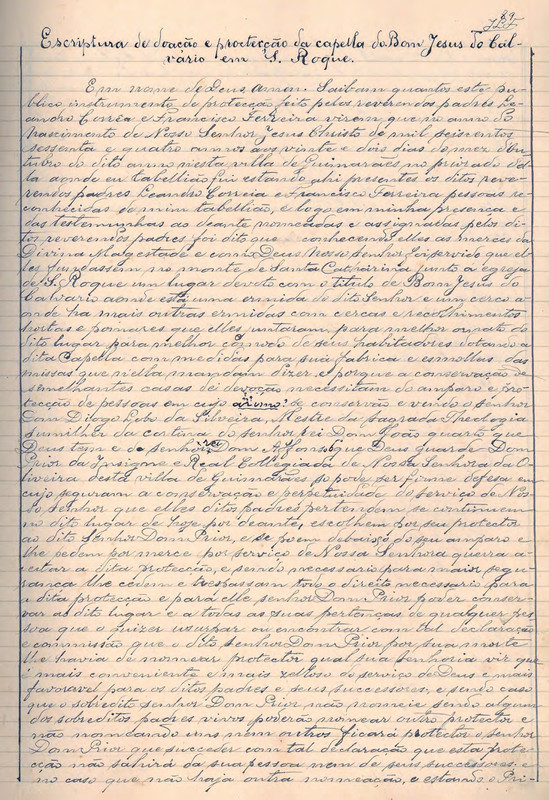 89
Escriptura de doação e protecção da capella do Bom Jesus do Cal-
vario em S. Roque.
Em nome de Deus, amen. Saibam quantos este pu-
blico instrumento de protecção feito pelos reverendos padres Le-
andro Corrêa e Francisco Ferreira virem que no anno do
Nascimento de Nosso Senhor Jesus Christo de mil seiscentos
sessenta e quatro annos aos vinte e dois dias do mez d'ou-
tubro do dito anno nesta villa de Guimarães no priorado del-
la aonde eu tabellião fui estando ahi presentes os ditos reve-
rendos padres Leandro Correia e Francisco Ferreira pessoas re-
conhecidas de mim tabellião, e logo em minha presença e
das testemunhas ao deante nomeadas e assignadas pelos di-
tos reverendos padres foi dito que conhecendo elles as mercês da
Divina Magestade e como Deus Nosso Senhor foi servido que el-
les fundassem no monte de Santa Catharina junto á egreja
de S. Roque um lugar devoto com o titulo de Bom Jesus do
Calvario aonde está uma ermida do dito Senhor e um cerco a-
onde ha mais outras ermidas com cercas e recolhimentos
hortas e pomares que elles para melhor ornato do
dito lugar para melhor commodo de seus habitadores dotando a
dita Capella com medidas para sua fabrica e esmollas das
missas que n'ella mandam dizer, e porque a conservação de
semelhantes casas de devoção necessitam de amparo e pro-
tecção de pessoas em cujo arrimo se conserve e vendo o senhor
Dom Diogo Lobo da Silveira, Mestre da Sagrada Theologia
sumilher da cortina do senhor rei Dom João quarto que
Deus tem e do senhor rei Dom Affonso que Deus guarde Dom
Prior da Insigne e Real Collegiada de Nossa Senhora da O-
liveira desta villa de Guimarães só pode ser firme defesa em
cujo seguram a conservação e perpetuidade do serviço de Nos-
so Senhor que elles ditos padres pertendem se continuem
no dito lugar de hoje por deante, escolhem por seu protector
ao dito Senhor Dom Prior, e se poem debaixo do seu amparo e
lhe pedem por mercê por serviço de Nossa Senhora queira a-
ceitar a dita protecção, e sendo necessario para maior segu-
rança lhe cedem e trespassam todo o direito necessario para
a dita protecção e para elle senhor Dom Prior poder conser-
var ao dito lugar e a todas as suas pertenças de qualquer pes-
soa que o quizer usurpar ou encontrar com tal declaração
e commissão que o dito senhor Dom Prior por sua morte
lhe havia de nomear protector qual sua senhoria vir que
é mais conveniente e mais zelloso do serviço de Deus e mais
favoravel para os ditos padres e seus successores, e sendo caso
que o sobredito senhor Dom Prior não nomeie sendo algum
dos sobreditos padres vivos poderão nomear outro protector e
não nomeando uns nem outros ficará protector o senhor
Dom Prior que succeder com tal declaração que esta prote-
cção não sahirá da sua pessoa nem de seus successores, e
no caso que não haja outra nomeação, e estando o Pri-